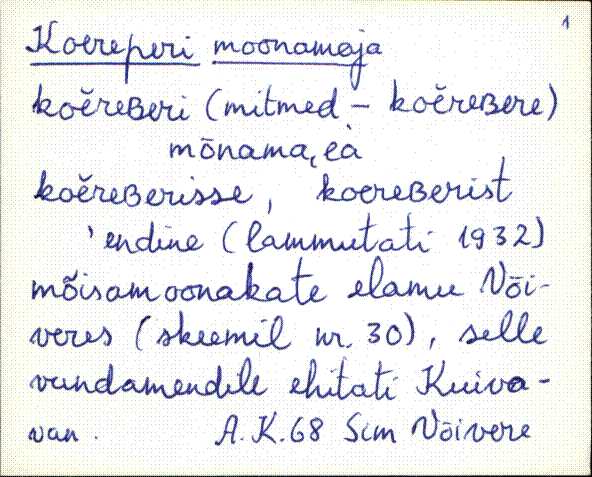 1
Koereperi moonamaja
koěreʙeri (mitmed – koěreʙere)
mōnama,eà
koěreʙerisse, koereʙerist
'endine (lammutati 1932)
mõisamoonakate elamu Või-
veres (skeemil nr. 30), selle
vundamendile ehitati Kuiva-
van. A.K.68 Sim Võivere